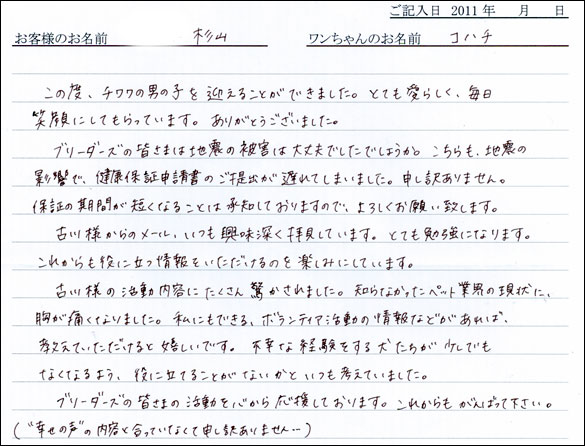 ご記入日 2011 年　月　日
お客様のお名前　杉山　ワンちゃんのお名前　コハチ
この度、チワワの男の子を迎えることができました。とても愛らしく、毎日
笑顔にしてもらっています。ありがとうございました。
ブリーダーズの皆さまは地震の被害は大丈夫でしたでしょうか。こちらも、地震の
影響で、健康保証申請書のご提出が遅れてしまいました。申し訳ありません。
保証の期間が短くなることは承知しておりますので、よろしくお願い致します。
古川様からのメール、いつも興味深く拝見しています。とても勉強になります。
これからも役に立つ情報をいただけるのを楽しみにしています。
古川様の活動内容にたくさん驚かされました。知らなかったペット業界の現状に、
胸が痛くなりました。私にもできる、ボランティア活動の情報などがあれば、
教えていただけると嬉しいです。不幸な経験をする犬たちが少しでも
なくなるよう、役に立てることがないかといつも考えていました。
ブリーダーズの皆さまの活動を心から応援しております。これからもがんばって下さい。
(“幸せの声”の内容と合っていなくて申し訳ありません…)